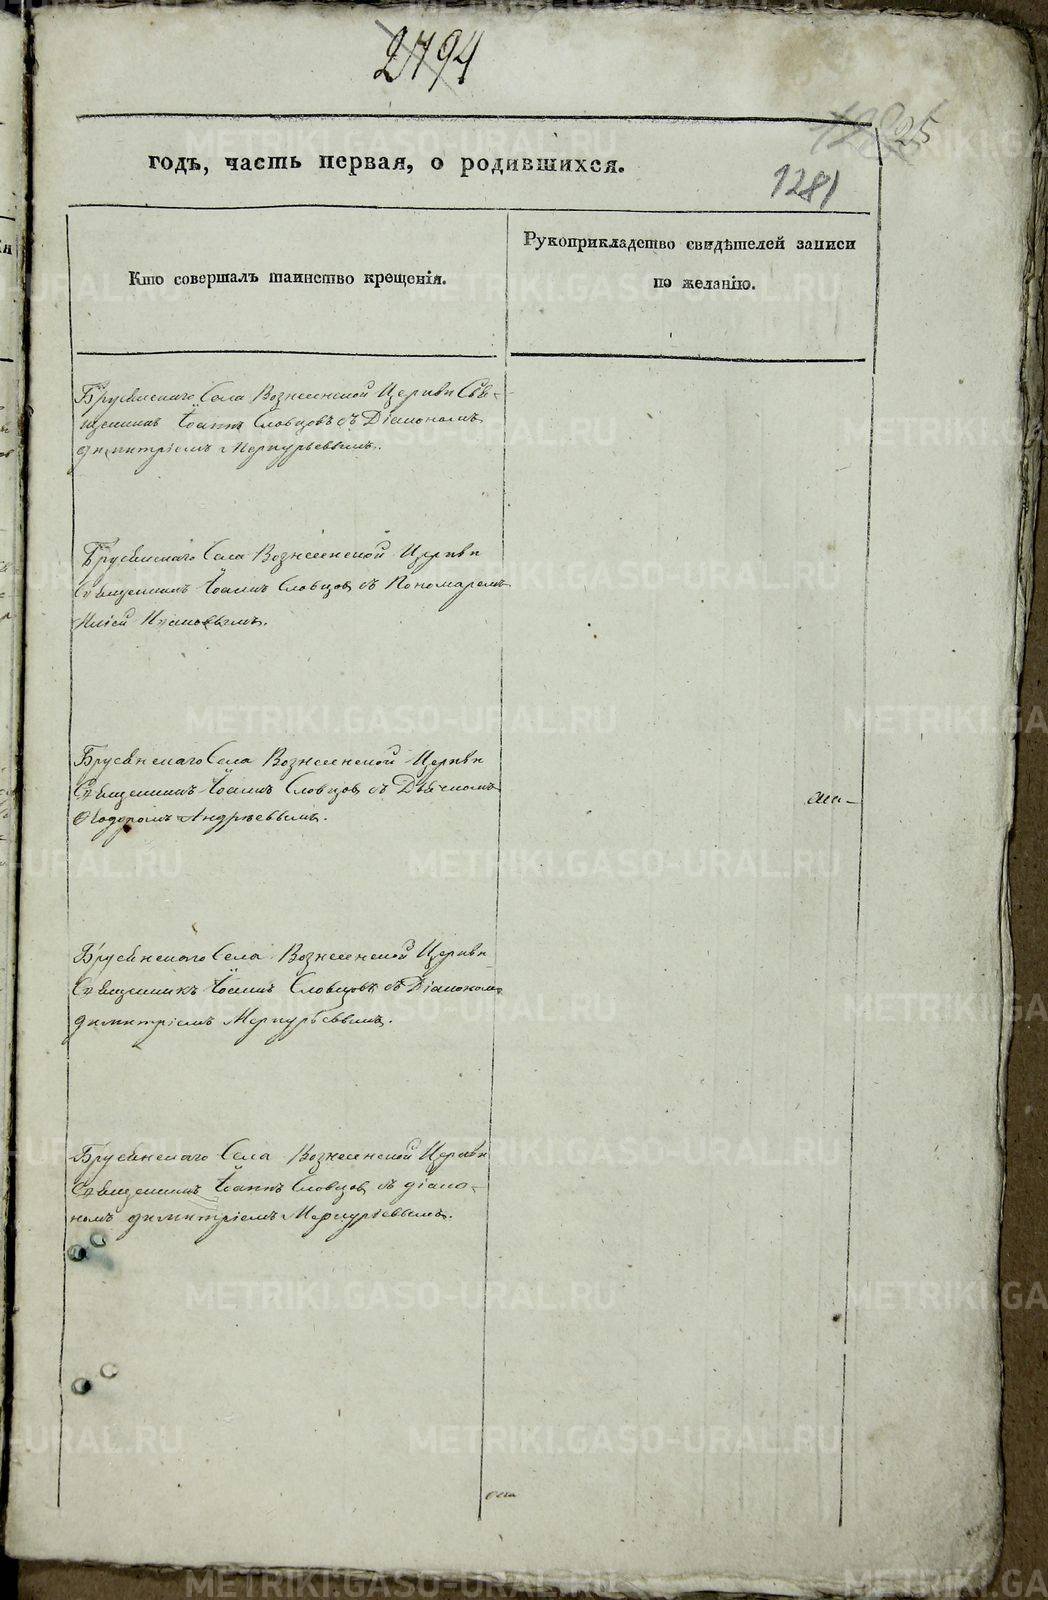 2794
25
годъ, часть первая, о родившихся.
1281
Кто совершалъ таинство крещенія.
Рукоприкладство свидѣтелей записи
по желанію.
Брусянскаго Села Вознесенской Церкви Свя-
щенникъ Іоаннъ Словцовъ съ Діакономъ
Димитріемъ Меркурьевымъ.
Брусянскаго Села Вознесенской Церкви
Священникъ Іоаннъ Словцовъ съ Пономаремъ
Иліей
Брусянскаго Села Вознесенской Церкви
Священникъ Іоаннъ Словцовъ съ Дьячкомъ
Ѳеодоромъ Андреевымъ.
Брусянскаго Села Вознесенской Церкви
Священникъ Іоаннъ Словцовъ съ Діакономъ
Димитріемъ Меркурьевымъ.
Брусянскаго Села Вознесенской Церкви
Священникъ Іоаннъ Словцовъ съ діако-
номъ Димитріемъ Меркурьевымъ.
METRIKI.GASO-URAL.RU